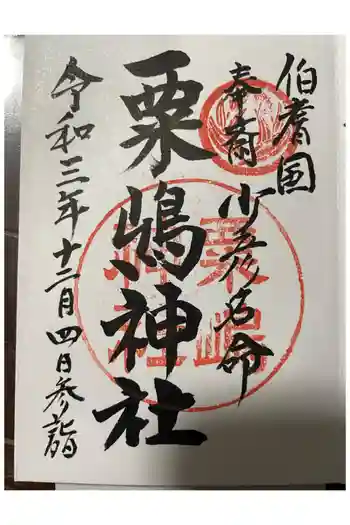 伯耆国
奉斎 少彦名命
粟嶋神社
令和三年十二月四日参詣
粟嶋神社